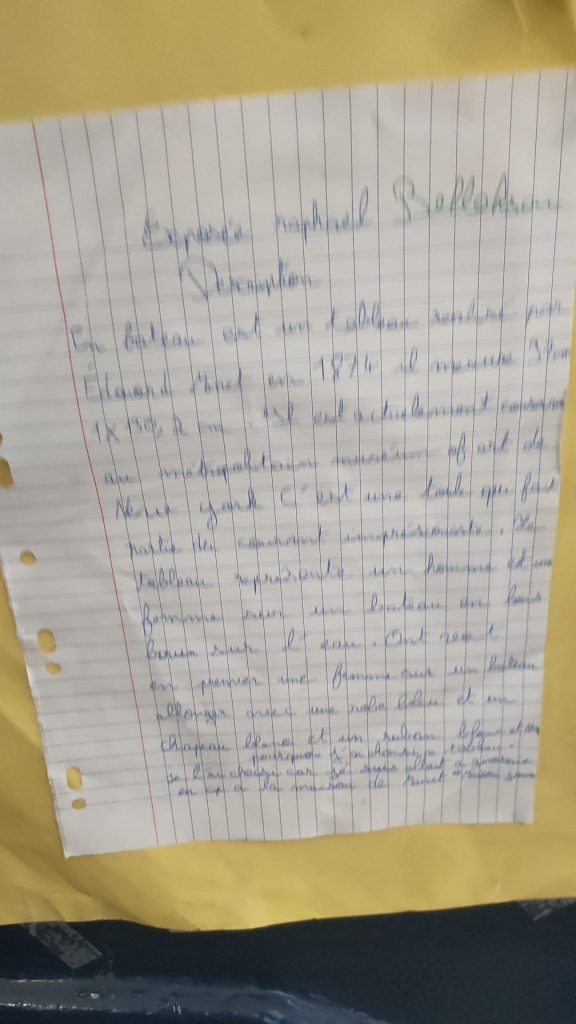 Exposée raphael
Description
En bateau est un tableau réalisé par
Édouard Manet en 1874 il mesure 97
1 X 130, 2 cm. Il est actuelement conservé
au métropolitain muséum of art de
New york C'est une toile qui fait
partie des courant impréssioniste. Le
tableau représente un homme et une
femme sur un bateau en
sur l'eau. Ont voit
en premier une femme sur un bateau
allonger avec une robe bleu et un
chapeau blanc et un ruban blanc et
pourquoi j'ai choisi ce tableau.
je l'ai choisi car je suis allait a
en cp a la maison de